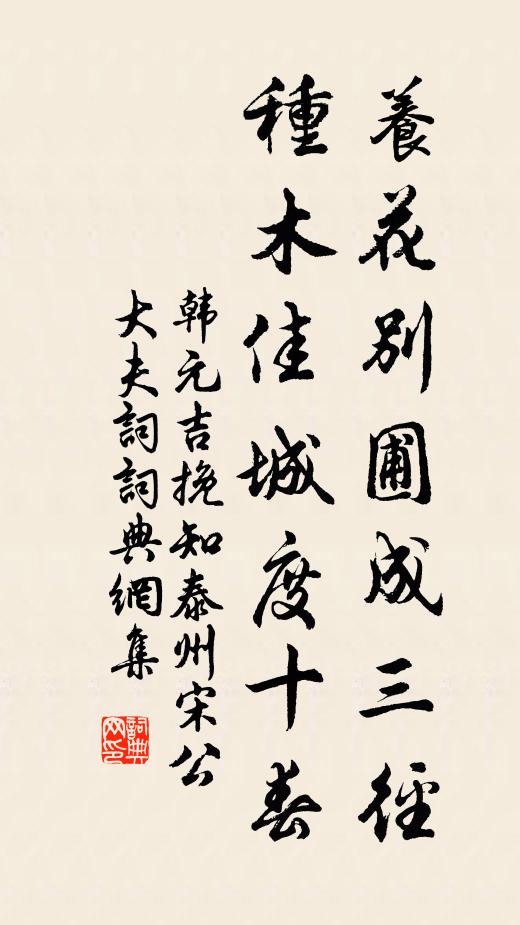 養花别圃成三徑
種木佳城度十春
韩元吉挽知泰州宋公
大夫詞詞典網集
詞典網印